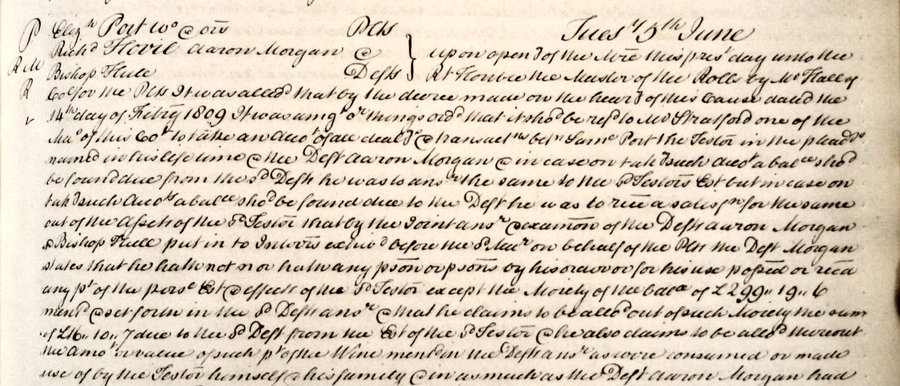 Tuesy 5th June
P Elizth Port Wo & ors Plts
Richd Flovil Aaron Morgan &
R M Bishop Hull Defts
upon openg of the Mre this prest day unto the
Rt Honble the Master of the Rolls by Mr Hall of
R Col for the Plts It was alledd that by the decree made on the hearg of this Cause dated the
v day of Febry 1809 It was amgst or things ordd that it shd be refd to Mr Stratford one of the
Mars of this Cot to take an Acct of all dealgs & transactns betn Saml Port the Testor in the pleadgs
named in his life time & the Deft Aaron Morgan & in case on takg such Acct a balce shd
be found due from the sd Deft he was to ansr the same to the sd Testors Est but in case on
takg such Accts a balce shd be found due to the Deft he was to rece a satisfn for the same
out of the Assets of the sd Testor that by the Joint ansr & examon of the Defts Aaron Morgan
& Bishop Hull put in to Interries exhited before the sd Mar on behalf of the Plts the Deft Morgan
states that he hath not nor hath any pson or psons by his order or for his use possed or reced
any pt of the persl Est & effects of the sd Testor except the Moiety of the balce of £299,, 19,, 6
mentd & set forth in the sd Defts ansr & that he claims to be alld out of such Moiety the sum
of £16,, 10,, 7 due to the sd Deft from the Est of the sd Testor & he also claims to be alld thereout
the amot or value of such pt of the Wine mentd in the sd Defts ansr as were consumed or made
use of by the Testor himself & his family & in as much as the Deft Aaron Morgan had